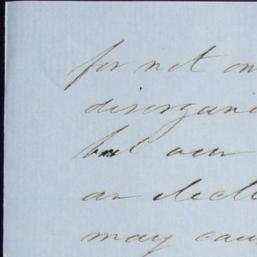 for not on
disorgani
but our
an electi
may cau